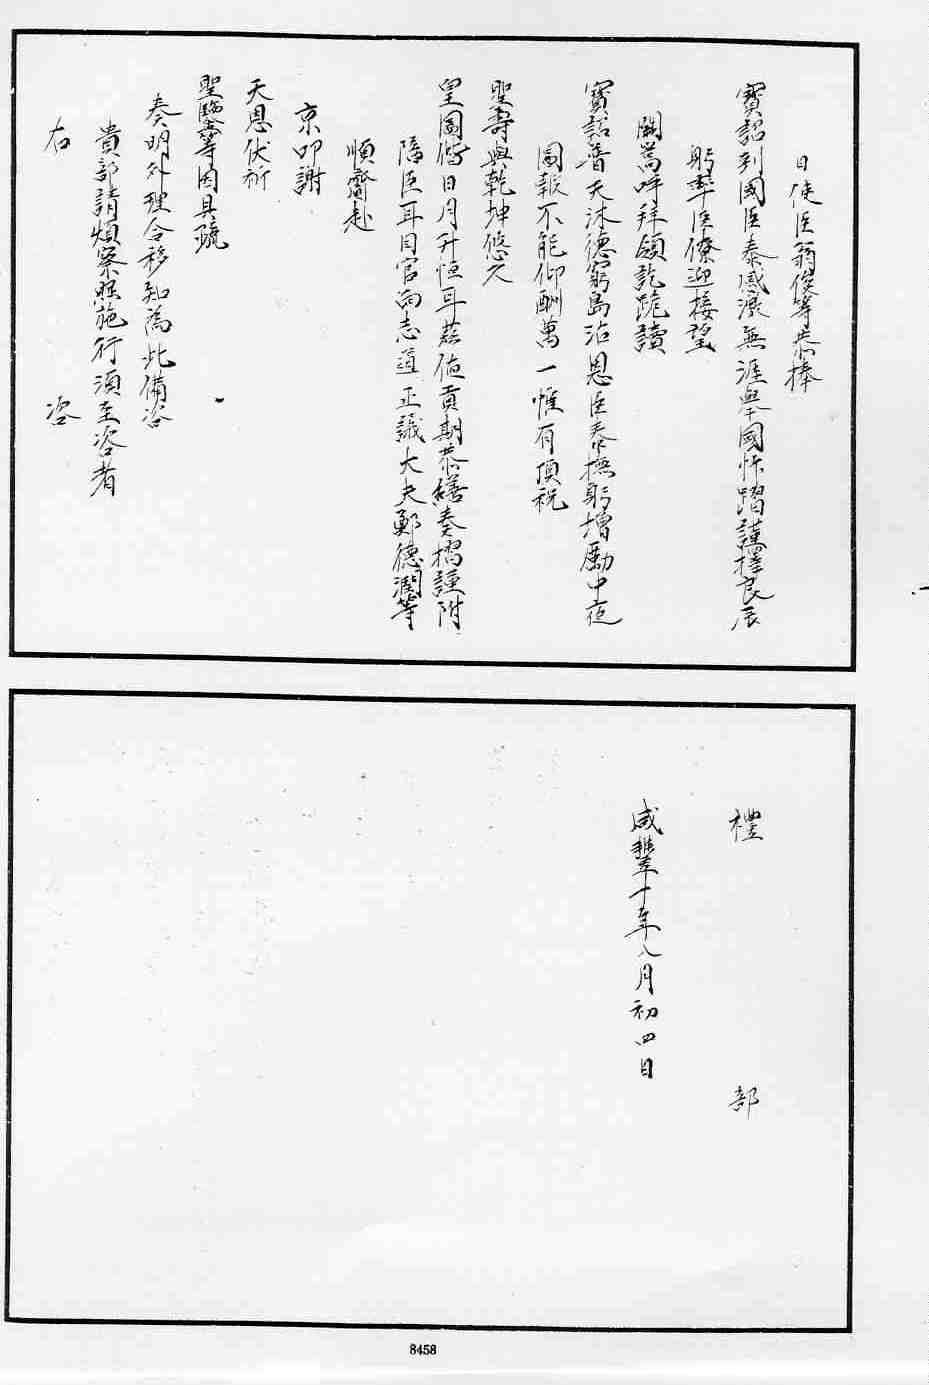 日使臣翁俊等恭捧
寶詔到國臣泰感激無涯舉國忭躍謹擇良辰
躬率臣僚迎接望
闕嵩呼拜領訖跪讀
寶詔普天沐德窮島沾恩臣泰撫躬增勵中夜
圖報不能仰酬萬一惟有頂祝
聖壽與乾坤悠久
皇圖偕日月升恒耳茲値貢期恭繕奏摺謹附
陪臣耳目官向志道正議大夫鄭德潤等
順齎赴
京叩謝
天恩伏祈
聖鑒等因具疏
奏明外理合移知為此備咨
貴部請煩察照施行須至咨者
右 咨
禮 部
咸豐十年八月初四日
8458